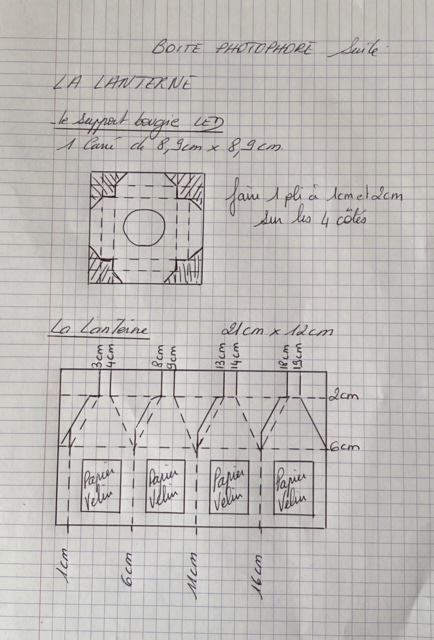 BOITE PHOTOPHORE Suite
LA LANTERNE
le support bougie LED
1 Carré de 8,9cm x 8,9cm.
faire 1 pli à 1cm et 2cm
sur les 4 côtés
La Lanterne 21cm x 12cm
3cm 4cm 8cm 9cm 13cm 14cm 18cm 19cm
2cm
6cm
Papier Papier Papier Papier
Vélin Vélin Vélin Vélin
1cm 6cm 11cm 16cm